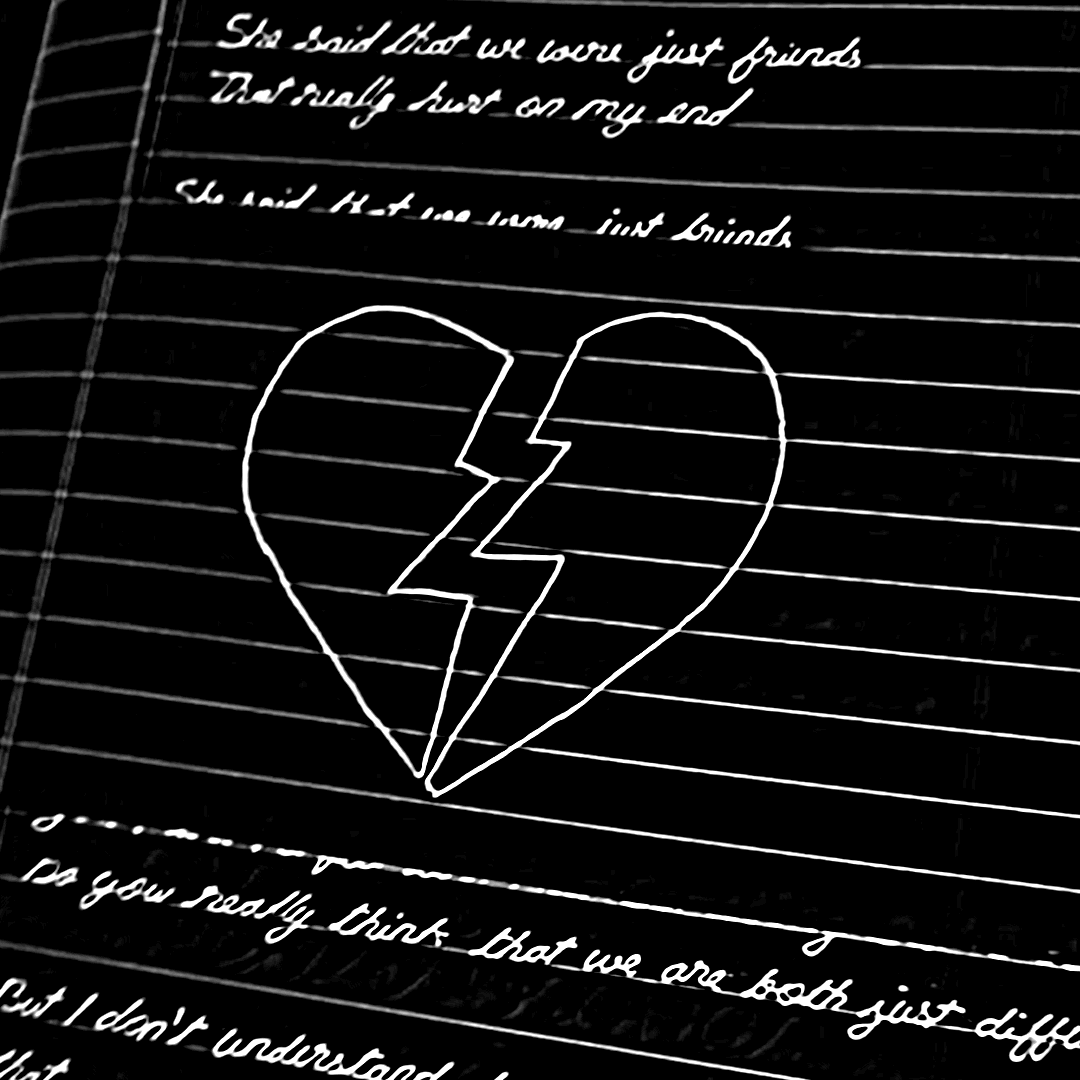 She said that we were just friends
That really hurt on my end
She said that we were just friends
Do you really think that we are both just diffe
But I don't understand
that